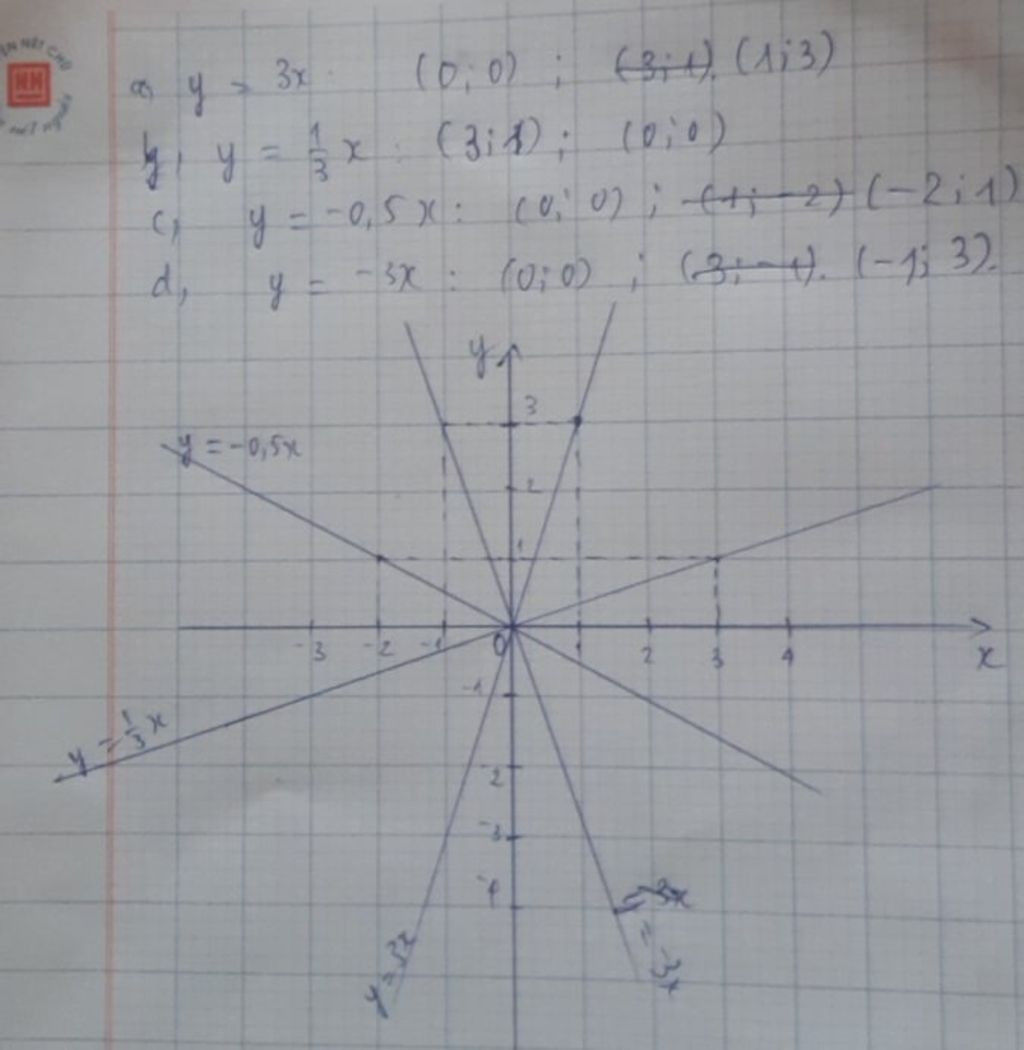 a, y = 3x : (0; 0) ; (3; 1). (1; 3)
b, y = 1/3 x : (3; 1) ; (0; 0)
c, y = -0,5x : (0; 0) ; (1; -2) (-2; 1)
d, y = -3x : (0; 0) ; (3; -1). (-1; 3).
y
3
y = -0,5x
2
1
-3 -2 -1 0 1 2 3 4 x
-1
y = 1/3 x
-2
-3
-4
= -3x
y = 3x
= -3x